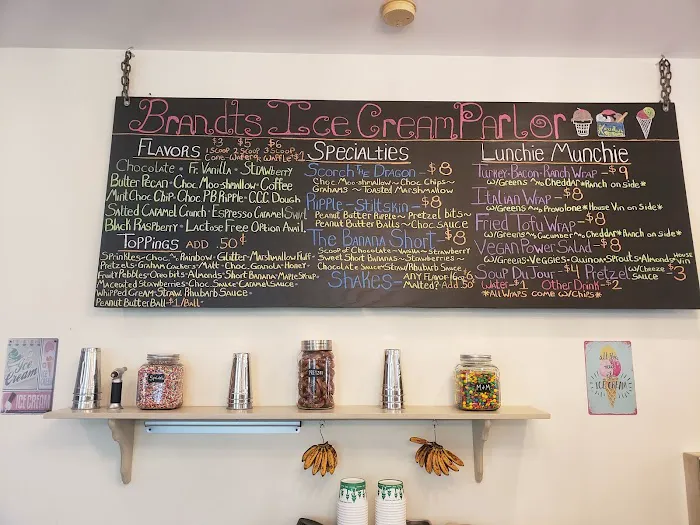 Brandts Ice Cream Parlor
Flavors $3 $5 $6
1 Scoop 2 Scoop 3 Scoop
Cone - Wafer & Waffle $1
Chocolate - Fr. Vanilla - Strawberry
Butter Pecan - Choc Moo-shmallow - Coffee
Mint Choc Chip - Choc PB Ripple - CCC Dough
Salted Caramel Crunch - Espresso Caramel Swirl
Black Raspberry - Lactose Free Option Avail.
Toppings Add .50¢
Sprinkles - Choc Rainbow - Glitter - Marshmallow Fluff -
Pretzels - Graham Crackers - Malt - Choc. Granola - Honey -
Fruity Pebbles - Choc - Almonds - Short Banana - Maple Syrup -
Macerated Strawberries - Choc Sauce - Caramel Sauce -
Whipped Cream - Straw. Rhubarb Sauce -
Peanut Butter Ball - $1/Ball -
Specialties
Scorch The Dragon - $8
Choc Moo-shmallow ~ Choc Chips ~
Grahams ~ Toasted Marshmallow
Ripple-Stiltskin - $8
Peanut Butter Ripple ~ Pretzel bits ~
Peanut Butter Balls ~ Choc Sauce
The Banana Short - $8
Scoop of Chocolate - Vanilla - Strawberry
Sweet Short Bananas ~ Strawberries ~
Chocolate Sauce - Straw/Rhubarb Sauce
Shakes - Any Flavor - 16oz $6
Malted? Add .50
Lunchie Munchie
Turkey-Bacon-Ranch Wrap - $9
w/Greens ~ Cheddar *Ranch on side*
Italian Wrap - $8
w/Greens ~ Provolone *House Vin on Side*
Fried Tofu Wrap - $8
w/Greens ~ Cucumber ~ Cheddar *Ranch on side*
Vegan Power Salad - $8
w/Greens - Veggies - Quinoa - Sprouts - Almonds - House Vin
Soup Du Jour - $4 Pretzel w/Cheese Sauce $3
Water - $1 Other Drink - $2
*All Wraps come w/Chips*
Ice Cream
ICE CREAM
Sprinkles
PRETZELS
M&M
ICE CREAM